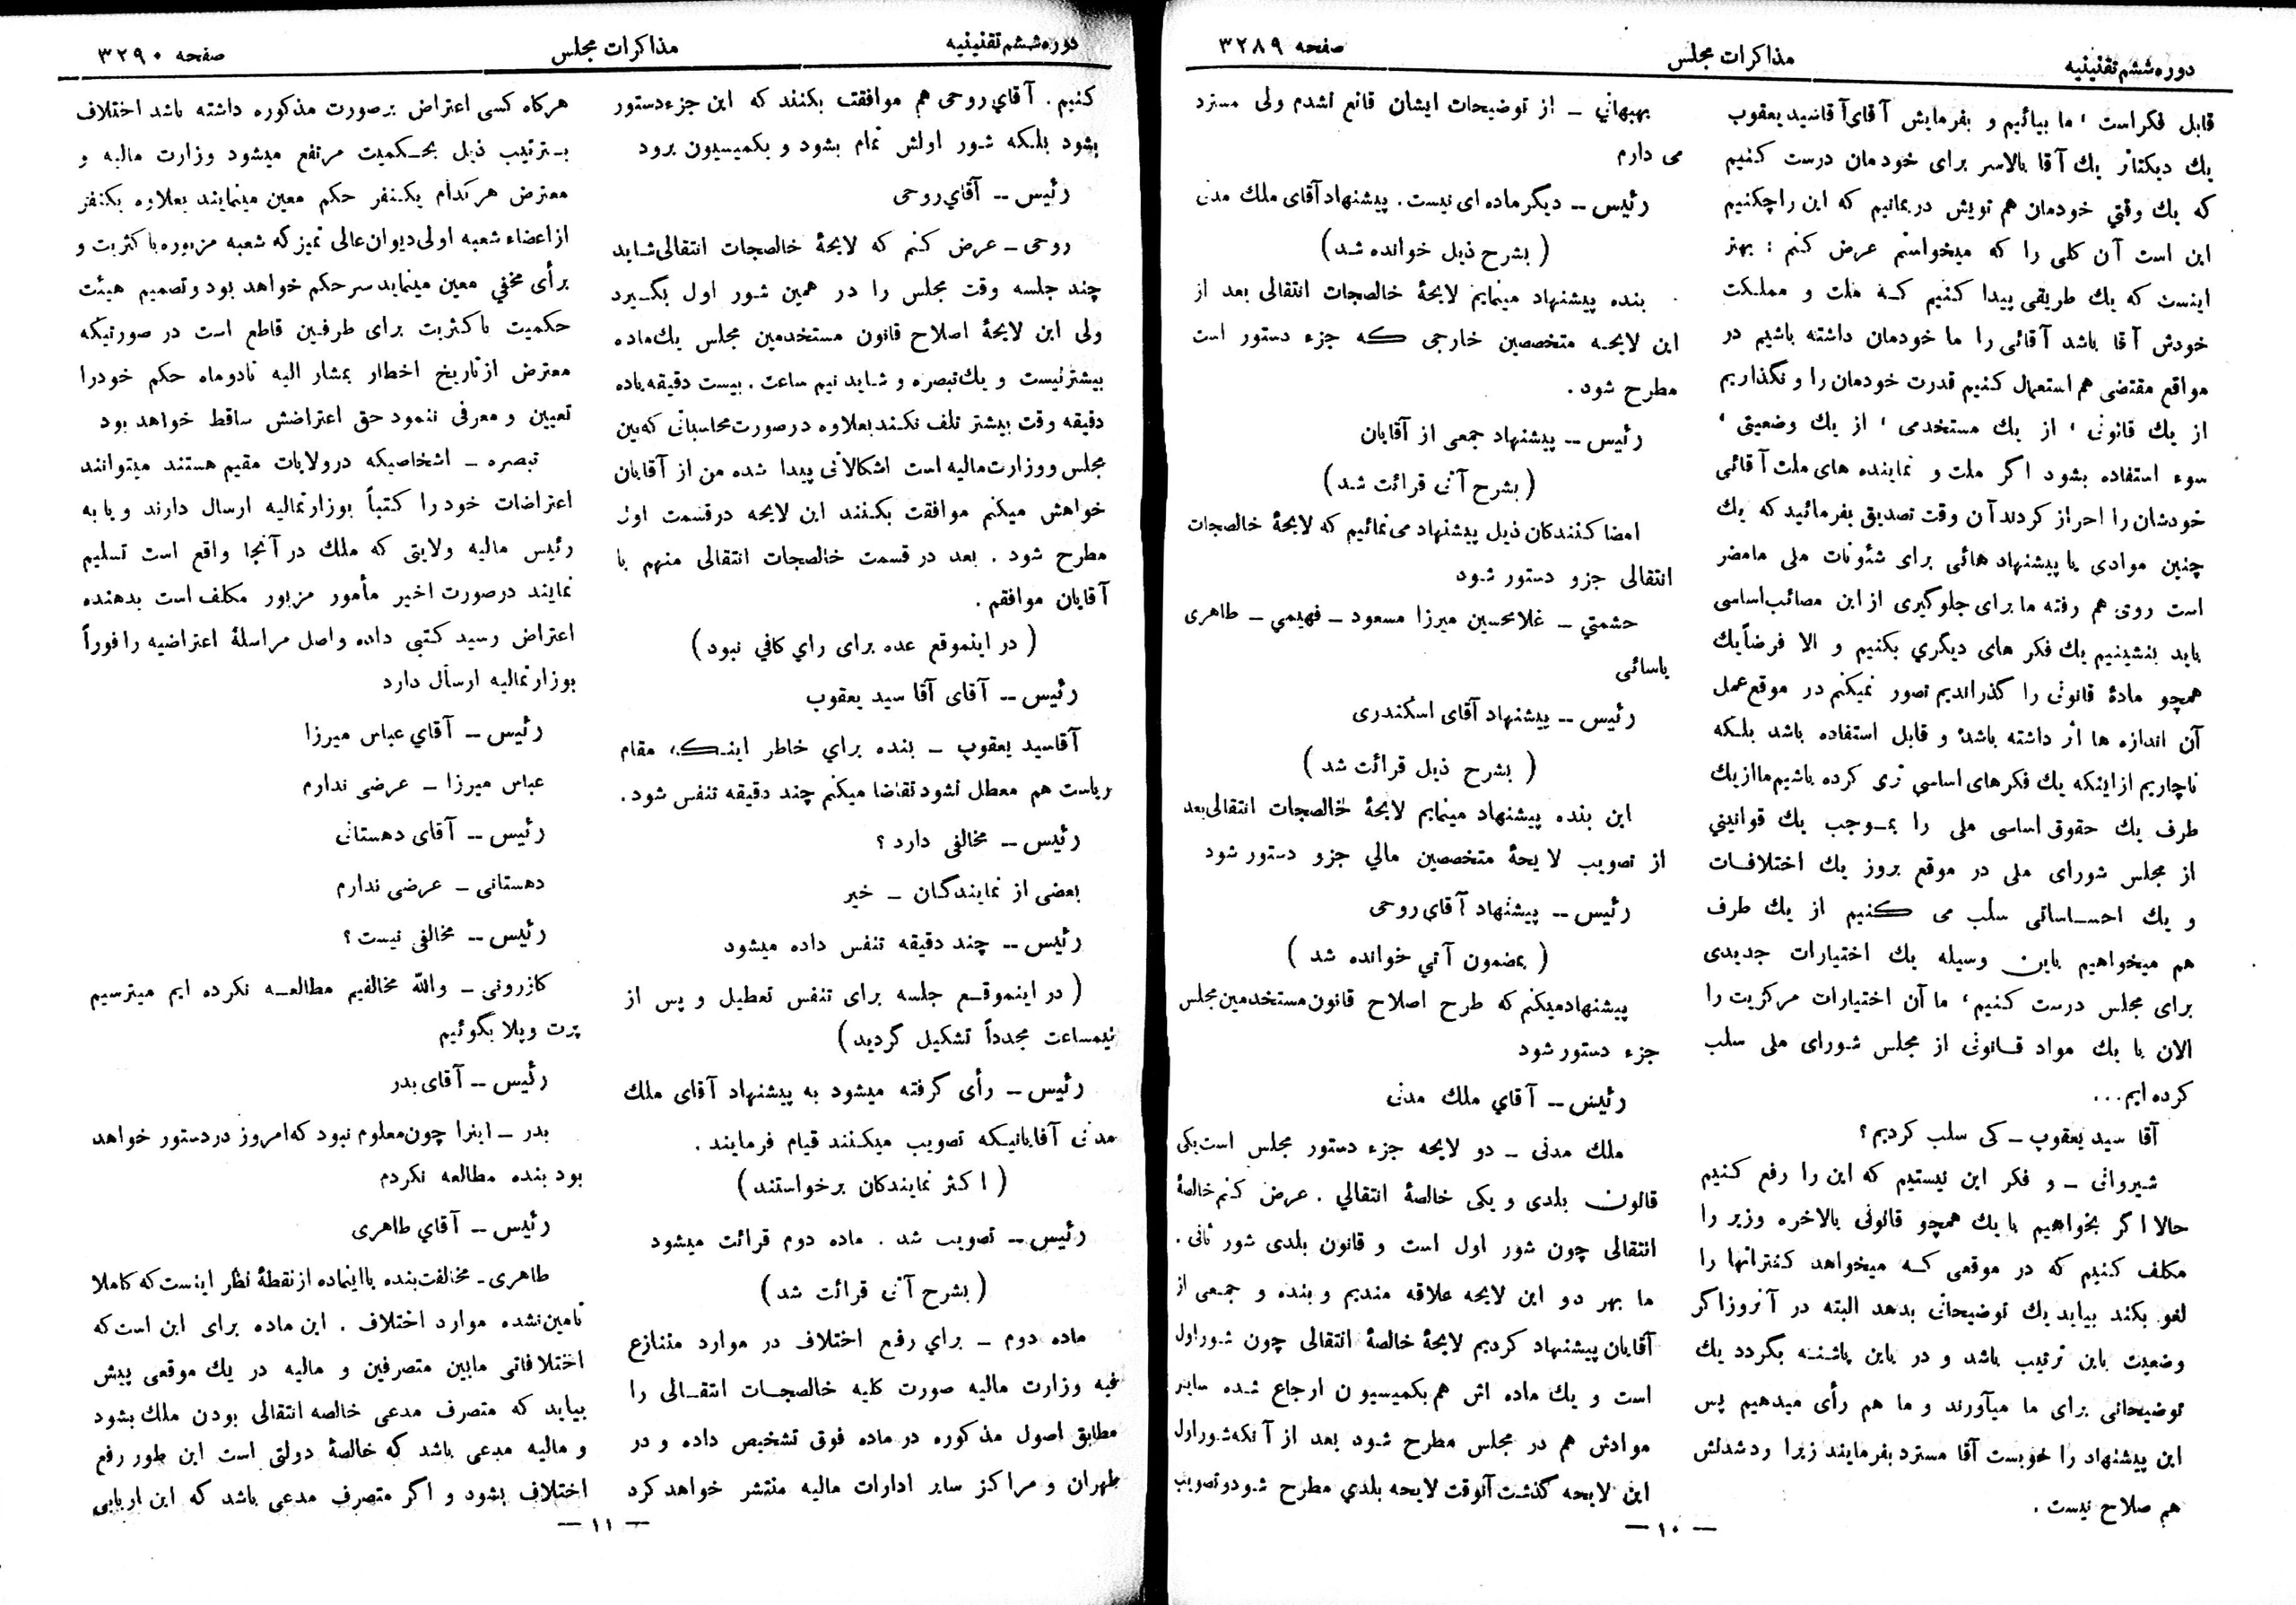 دوره ششم تقنینیه
مذاکرات مجلس
صفحه ۳۲۸۹
قابل فکر است ، ما بیائیم و بفرمایش آقای آقاسید یعقوب
یك دیکتاتر یك آقا بالاسر برای خودمان درست کنیم
که یك وقتي خودمان هم تویش در بمانیم که این را چکنیم
این است آن کلی را که میخواستم عرض کنم : بهتر
اینست که یك طریقی پیدا کنیم کـه ملت و مملکت
خودش آقا باشد آقائی را ما خودمان داشته باشیم در
مواقع مقتضی هم استعمال کنیم قدرت خودمان را و نگذاریم
از یك قانونی ، از یك مستخدمی ، از یك وضعیتی ،
سوء استفاده بشود اگر ملت و نماینده های ملت آقائی
خودشان را احراز کردند آن وقت تصدیق بفرمائید که یك
چنین موادی یا پیشنهاد هائی برای شئونات ملی ما مضر
است روی هم رفته ما برای جلوگیری از این مصائب اساسی
باید بنشینیم یك فکر های دیگري بکنیم و الا فرضاً یك
همچو مادهٔ قانونی را گذراندیم تصور نمیکنم در موقع عمل
آن اندازه ها اثر داشته باشد و قابل استفاده باشد بلکه
ناچاریم از اینکه یك فکر های اساسي تری کرده باشیم ما از یك
طرف یك حقوق اساسی ملی را بمـوجب یك قوانیني
از مجلس شورای ملی در موقع بروز یك اختلافـات
و یك احسـاساتی سلب می کنیم از یك طرف
هم میخواهیم باین وسیله یك اختیارات جدیدی
برای مجلس درست کنیم ، ما آن اختیارات مرکزیت را
الان با یك مواد قـانونی از مجلس شورای ملی سلب
کرده ایم...
آقا سید یعقوب ـ کی سلب کردیم ؟
شیروانی ـ و فکر این نیستیم که این را رفع کنیم
حالا اگر بخواهیم با یك همچو قانونی بالاخره وزیر را
مکلف کنیم که در موقعی کـه میخواهد کنتراتها را
لغو بکند بیاید یك توضیحاتی بدهد البته در آنروز اگر
وضعیت باین ترتیب باشد و در باین پاشنـه بگردد یك
توضیحاتی برای ما میآورند و ما هم رأی میدهیم پس
این پیشنهاد را خوبست آقا مسترد بفرمایند زیرا رد شدنش
هم صلاح نیست .
بهبهاني ـ از توضیحات ایشان قانع نشدم ولی مسترد
می دارم
رئیس ـ دیگر ماده ای نیست . پیشنهاد آقای ملك مدنی
( بشرح ذیل خوانده شد )
بنده پیشنهاد مینمایم لایحهٔ خالصجات انتقالی بعد از
این لایحـه متخصصین خارجی کـه جزء دستور است
مطرح شود .
رئیس ـ پیشنهاد جمعی از آقایان
( بشرح آتی قرائت شد )
امضا کنندکان ذیل پیشنهاد می نمائیم که لایحهٔ خالصجات
انتقالی جزو دستور شود
حشمتي ـ غلامحسین میرزا مسعود ـ فهیمي ـ طاهری
یاسائی
رئیس ـ پیشنهاد آقای اسکندری
( بشرح ذیل قرائت شد )
این بنده پیشنهاد مینمایم لایحهٔ خالصجات انتقالی بعد
از تصویب لایحهٔ متخصصین مالي جزو دستور شود
رئیس ـ پیشنهاد آقاي روحی
( بمضمون آتي خوانده شد )
پیشنهاد میکنم که طرح اصلاح قانون مستخدمین مجلس
جزء دستور شود
رئیس ـ آقاي ملك مدنی
ملك مدنی ـ دو لایحه جزء دستور مجلس است یکی
قانون بلدی و یکی خالصهٔ انتقالي . عرض کنم خالصهٔ
انتقالی چون شور اول است و قانون بلدی شور ثانی .
ما بهر دو این لایحه علاقه مندیم و بنده و جمعی از
آقایان پیشنهاد کردیم لایحهٔ خالصهٔ انتقالی چون شور اول
است و یك ماده اش هم بکمیسیون ارجاع شده سایر
موادش هم در مجلس مطرح شود بعد از آنکه شور اول
این لایحه گذشت آنوقت لایحه بلدي مطرح شود و تصویب
— ۱۰ —
دوره ششم تقنینیه
مذاکرات مجلس
صفحه ۳۲۹۰
کنیم . آقاي روحی هم موافقت بکنند که این جزء دستور
بشود بلکه شور اولش تمام بشود و بکمیسیون برود
رئیس ـ آقاي روحی
روحی ـ عرض کنم که لایحهٔ خالصجات انتقالی شاید
چند جلسه وقت مجلس را در همین شور اول بگـیرد
ولی این لایحهٔ اصلاح قانون مستخدمین مجلس یك ماده
بیشتر نیست و یك تبصره و شاید نیم ساعت . بیست دقیقه یا ده
دقیقه وقت بیشتر تلف نکند بعلاوه در صورت محاسباتی که بین
مجلس و وزارت مالیه است اشکالاتی پیدا شده من از آقایان
خواهش میکنم موافقت بکنند این لایحه در قسمت اول
مطرح شود . بعد در قسمت خالصجات انتقالی منهم با
آقایان موافقم .
( در اینموقع عده برای راي کافي نبود )
رئیس ـ آقای آقا سید یعقوب
آقاسید یعقوب ـ بنده براي خاطر اینـکـه مقام
ریاست هم معطل نشود تقاضا میکنم چند دقیقه تنفس شود .
رئیس ـ مخالفی دارد ؟
بعضی از نمایندگان ـ خیر
رئیس ـ چند دقیقه تنفس داده میشود
( در اینموقـع جلسه برای تنفس تعطیل و پس از
نیمساعت مجدداً تشکیل گردید )
رئیس ـ رأی گرفته میشود به پیشنهاد آقای ملك
مدنی آقایانیکه تصویب میکنند قیام فرمایند .
( اکثر نمایندکان برخواستند )
رئیس ـ تصویب شد . ماده دوم قرائت میشود
( بشرح آتی قرائت شد )
ماده دوم ـ براي رفع اختلاف در موارد متنازع
فیه وزارت مالیه صورت کلیه خالصجـات انتقـالی را
مطابق اصول مذکوره در ماده فوق تشخیص داده و در
طهران و مراکز سایر ادارات مالیه منتشر خواهد کرد
هرکاه کسی اعتراض برصورت مذکوره داشته باشد اختلاف
بـترتیب ذیل بحـکمیت مرتفع میشود وزارت مالیه و
معترض هر کدام یکـنفر حکم معین مینمایند بعلاوه یکنفر
از اعضاء شعبه اولی دیوان عالی تمیز که شعبه مزبوره باکثریت و
برأی مخفي معین مینماید سر حکم خواهد بود و تصمیم هیئت
حکمیت باکثریت برای طرفـین قاطع است در صورتیکه
معترض از تاریخ اخطار بمشار الیه تا دو ماه حکم خود را
تعیین و معرفی ننمود حق اعتراضش ساقط خواهد بود
تبصره ـ اشخاصیکه در ولایات مقیم هستند میتوانند
اعتراضات خود را کتباً بوزارتمالیه ارسال دارند و یا به
رئیس مالیه ولایتی که ملك در آنجا واقع است تسلیم
نمایند در صورت اخیر مأمور مزبور مکلف است بدهنده
اعتراض رسید کتبی داده و اصل مراسلهٔ اعتراضیه را فوراً
بوزارتمالیه ارسال دارد
رئیس ـ آقاي عباس میرزا
عباس میرزا ـ عرضی ندارم
رئیس ـ آقای دهستانی
دهستانی ـ عرضی ندارم
رئیس ـ مخالفی نیست ؟
کازرونی ـ والله مخالفیم مطالعـه نکرده ایم میترسیم
پرت و پلا بگوئیم
رئیس ـ آقای بدر
بدر ـ اینرا چون معلوم نبود که امروز در دستور خواهد
بود بنده مطالعه نکردم
رئیس ـ آقاي طاهری
طاهری ـ مخالفت بنده با اینماده از نقطهٔ نظر اینست که کاملا
تامین نشده موارد اختلاف . این ماده برای این است که
اختلافاتی مابین متصرفین و مالیه در یك موقعی پیش
بیاید که متصرف مدعی خالصه انتقالی بودن ملك بشود
و مالیه مدعی باشد که خالصهٔ دولتی است این طور رفع
اختلاف بشود و اگر متصرف مدعی باشد که این اربابی
— ۱۱ —